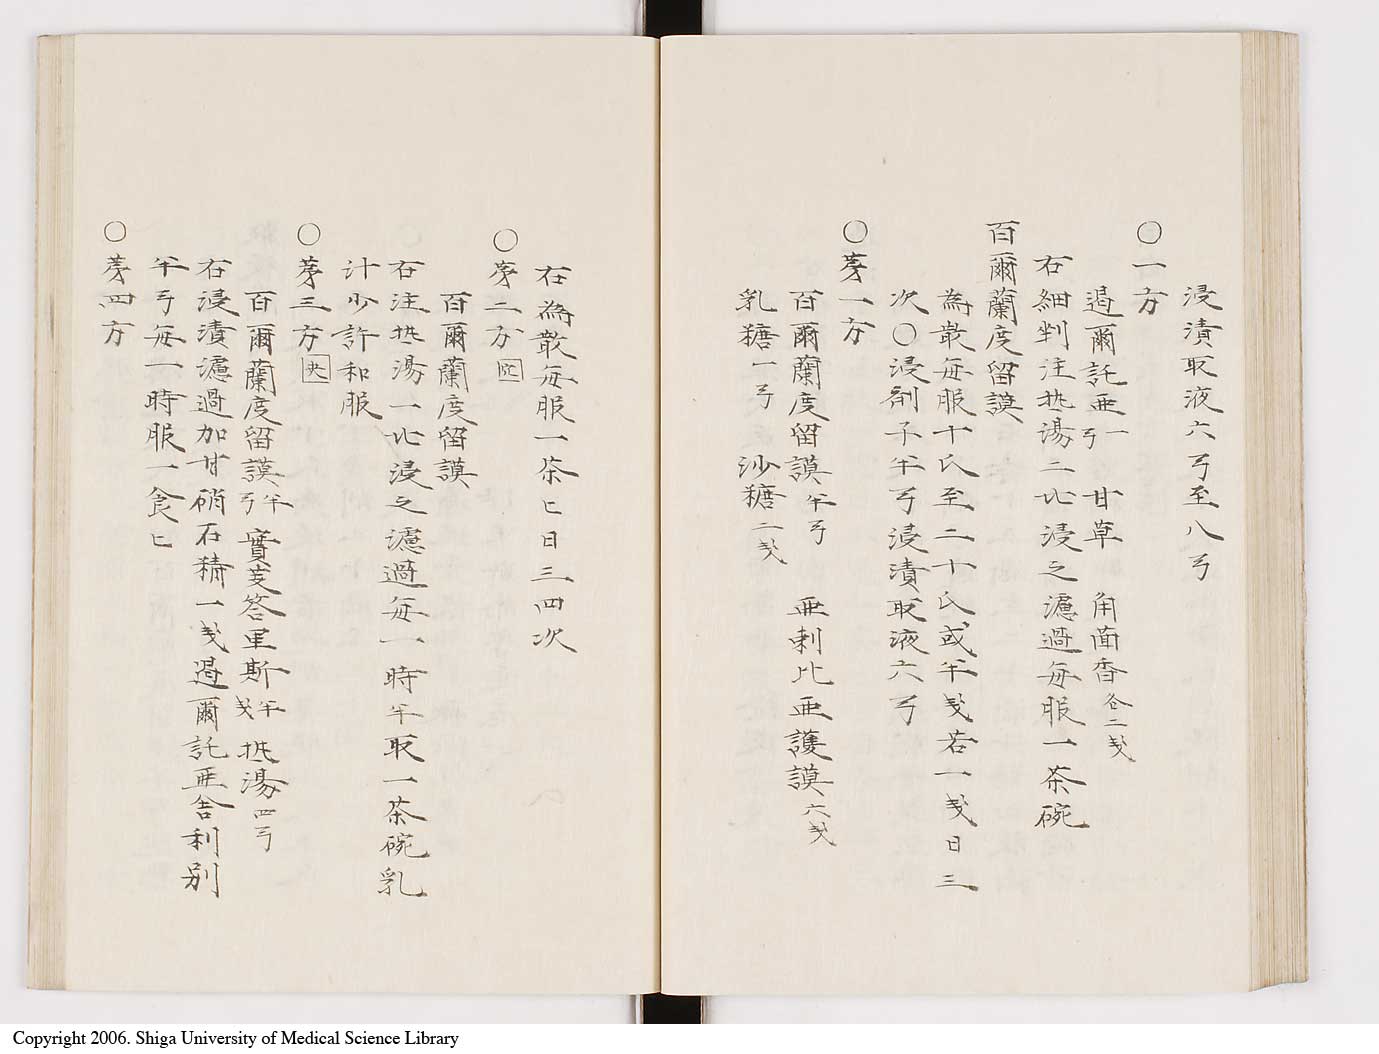 浸漬取液六弓至八弓
〇一方
遏爾託亜一弓 甘草 角茴香各二戔
右細剉注热湯二比浸之濾過毎服一茶碗
百爾蘭度留謨
為散毎服十氏至二十氏或半戔若一戔日三
次〇浸剤子半弓浸漬取液六弓
〇第一方
百爾蘭度留謨半弓 亜剌比亜護謨六戔
乳糖一弓 沙糖二戔
右為散毎服一茶匕日三四次
〇第二方
百爾蘭度留謨
右注热湯一比浸之濾過毎一時半取一茶碗乳
汁少許和服
〇第三方
百爾蘭度留謨半弓 實芰答里斯半戔 热湯四弓
右浸漬濾過加甘硝石精一戔遏爾託亜舎利別
半弓毎一時服一食匕
〇第四方
Copyright 2006. Shiga University of Medical Science Library